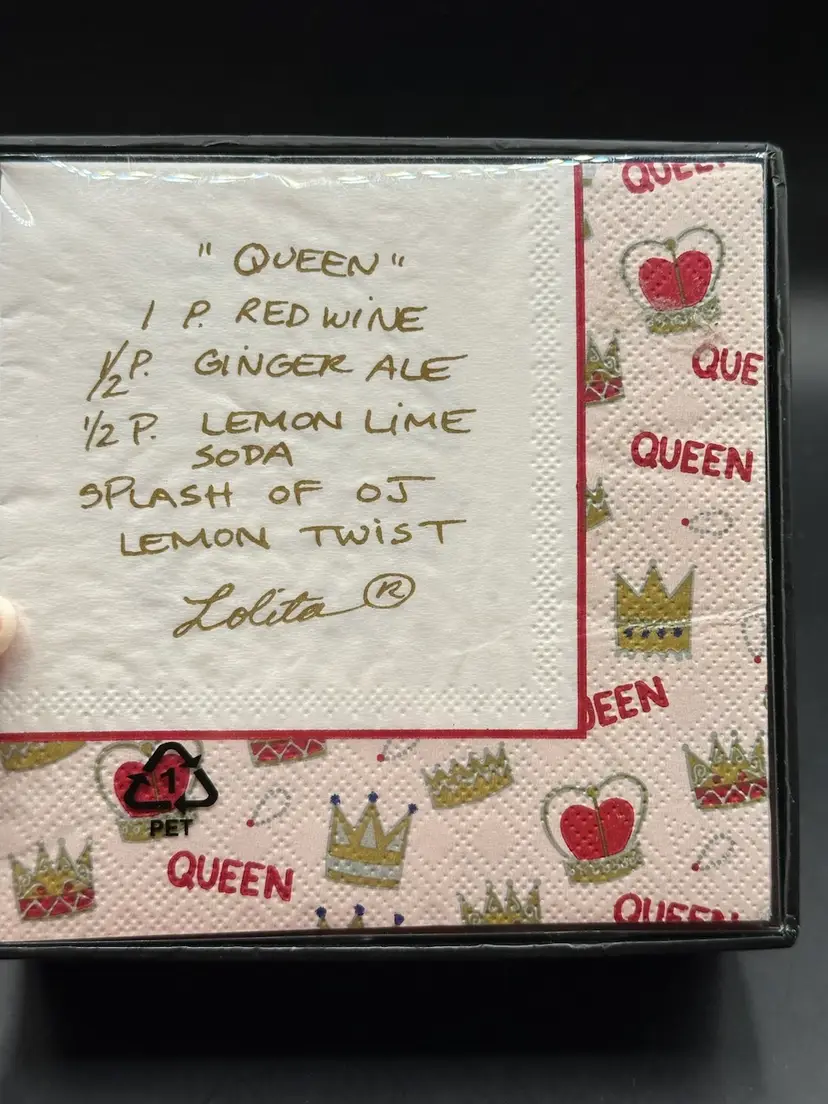 " QUEEN "
1 P. RED WINE
1/2 P. GINGER ALE
1/2 P. LEMON LIME
SODA
SPLASH OF OJ
LEMON TWIST
Lolita ®
QUEEN
QUE
QUEEN
QUEEN
1
PET
QUEEN
QUEEN